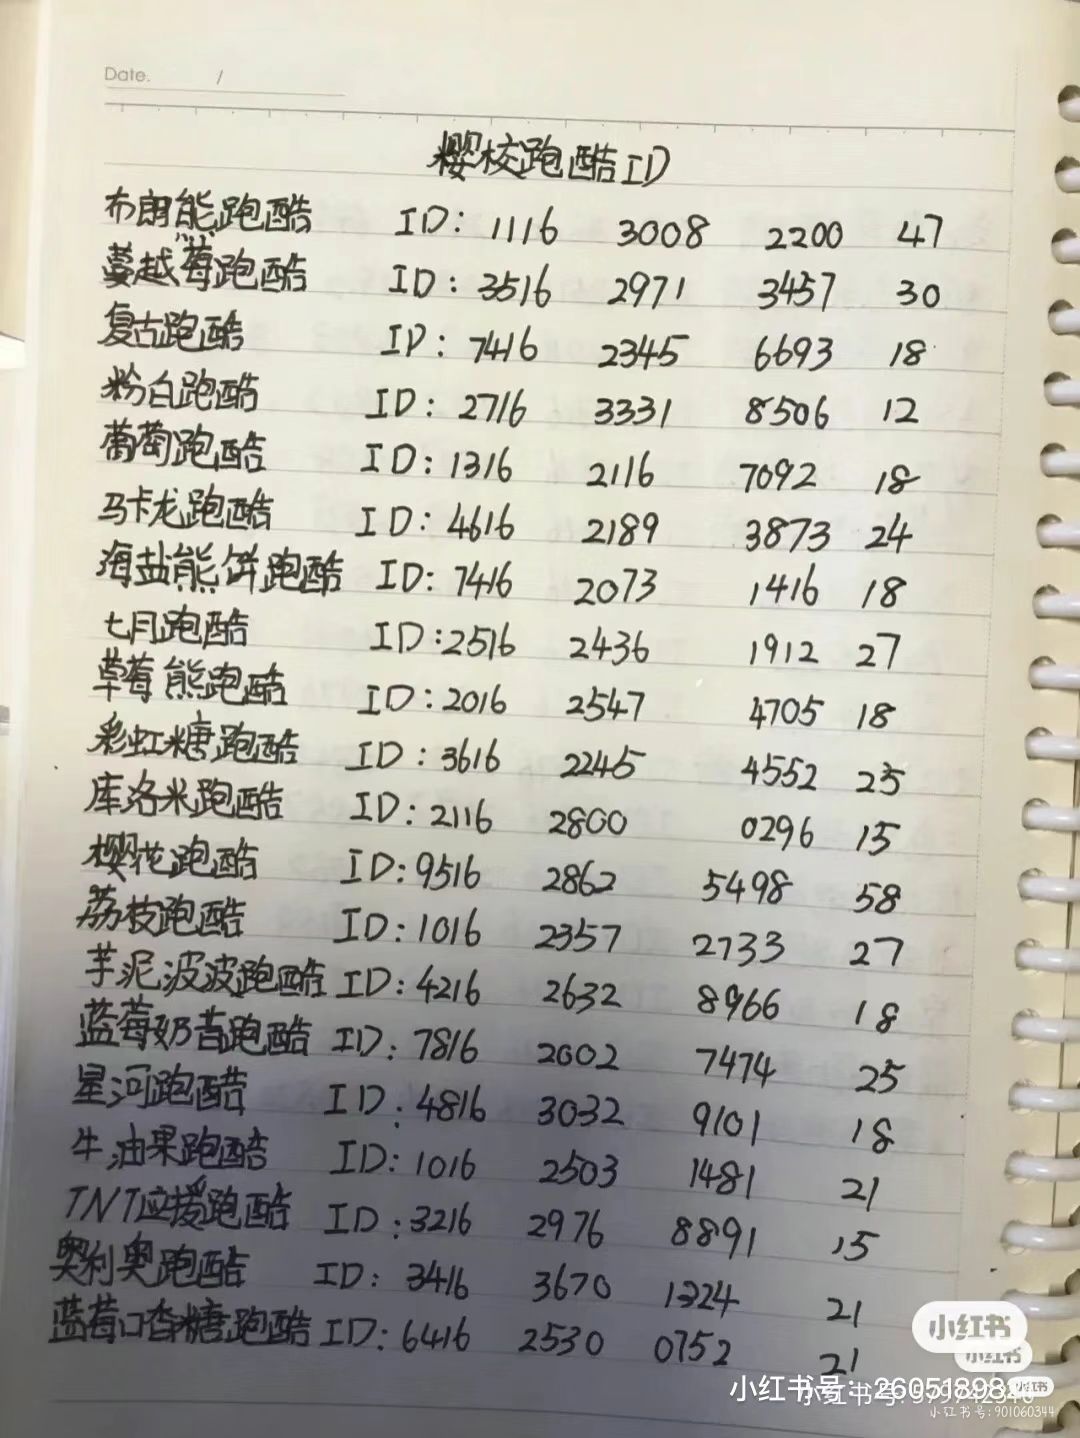 Date. /
樱校跑酷ID
布朗熊跑酷 ID: 1116 3008 2200 47
蔓越莓跑酷 ID: 3516 2971 3457 30
复古跑酷 ID: 7416 2345 6693 18
粉白跑酷 ID: 2716 3331 8506 12
葡萄跑酷 ID: 1316 2116 7092 18
马卡龙跑酷 ID: 4616 2189 3873 24
海盐熊饼跑酷 ID: 7416 2073 1416 18
七月跑酷 ID: 2516 2436 1912 27
草莓熊跑酷 ID: 2016 2547 4705 18
彩虹糖跑酷 ID: 3616 2245 4552 25
库洛米跑酷 ID: 2116 2800 0296 15
樱花跑酷 ID: 9516 2862 5498 58
荔枝跑酷 ID: 1016 2357 2733 27
芋泥波波跑酷 ID: 4216 2632 8966 18
蓝莓奶昔跑酷 ID: 7816 2002 7474 25
星河跑酷 ID: 4816 3032 9101 18
牛油果跑酷 ID: 1016 2503 1481 21
TNT应援跑酷 ID: 3216 2976 8891 15
奥利奥跑酷 ID: 3416 3670 1324 21
蓝莓口香糖跑酷 ID: 6416 2530 0752 21
小红书
小红书
小红书号: 26051898
小红书
小红书号:
小红书号:901060344